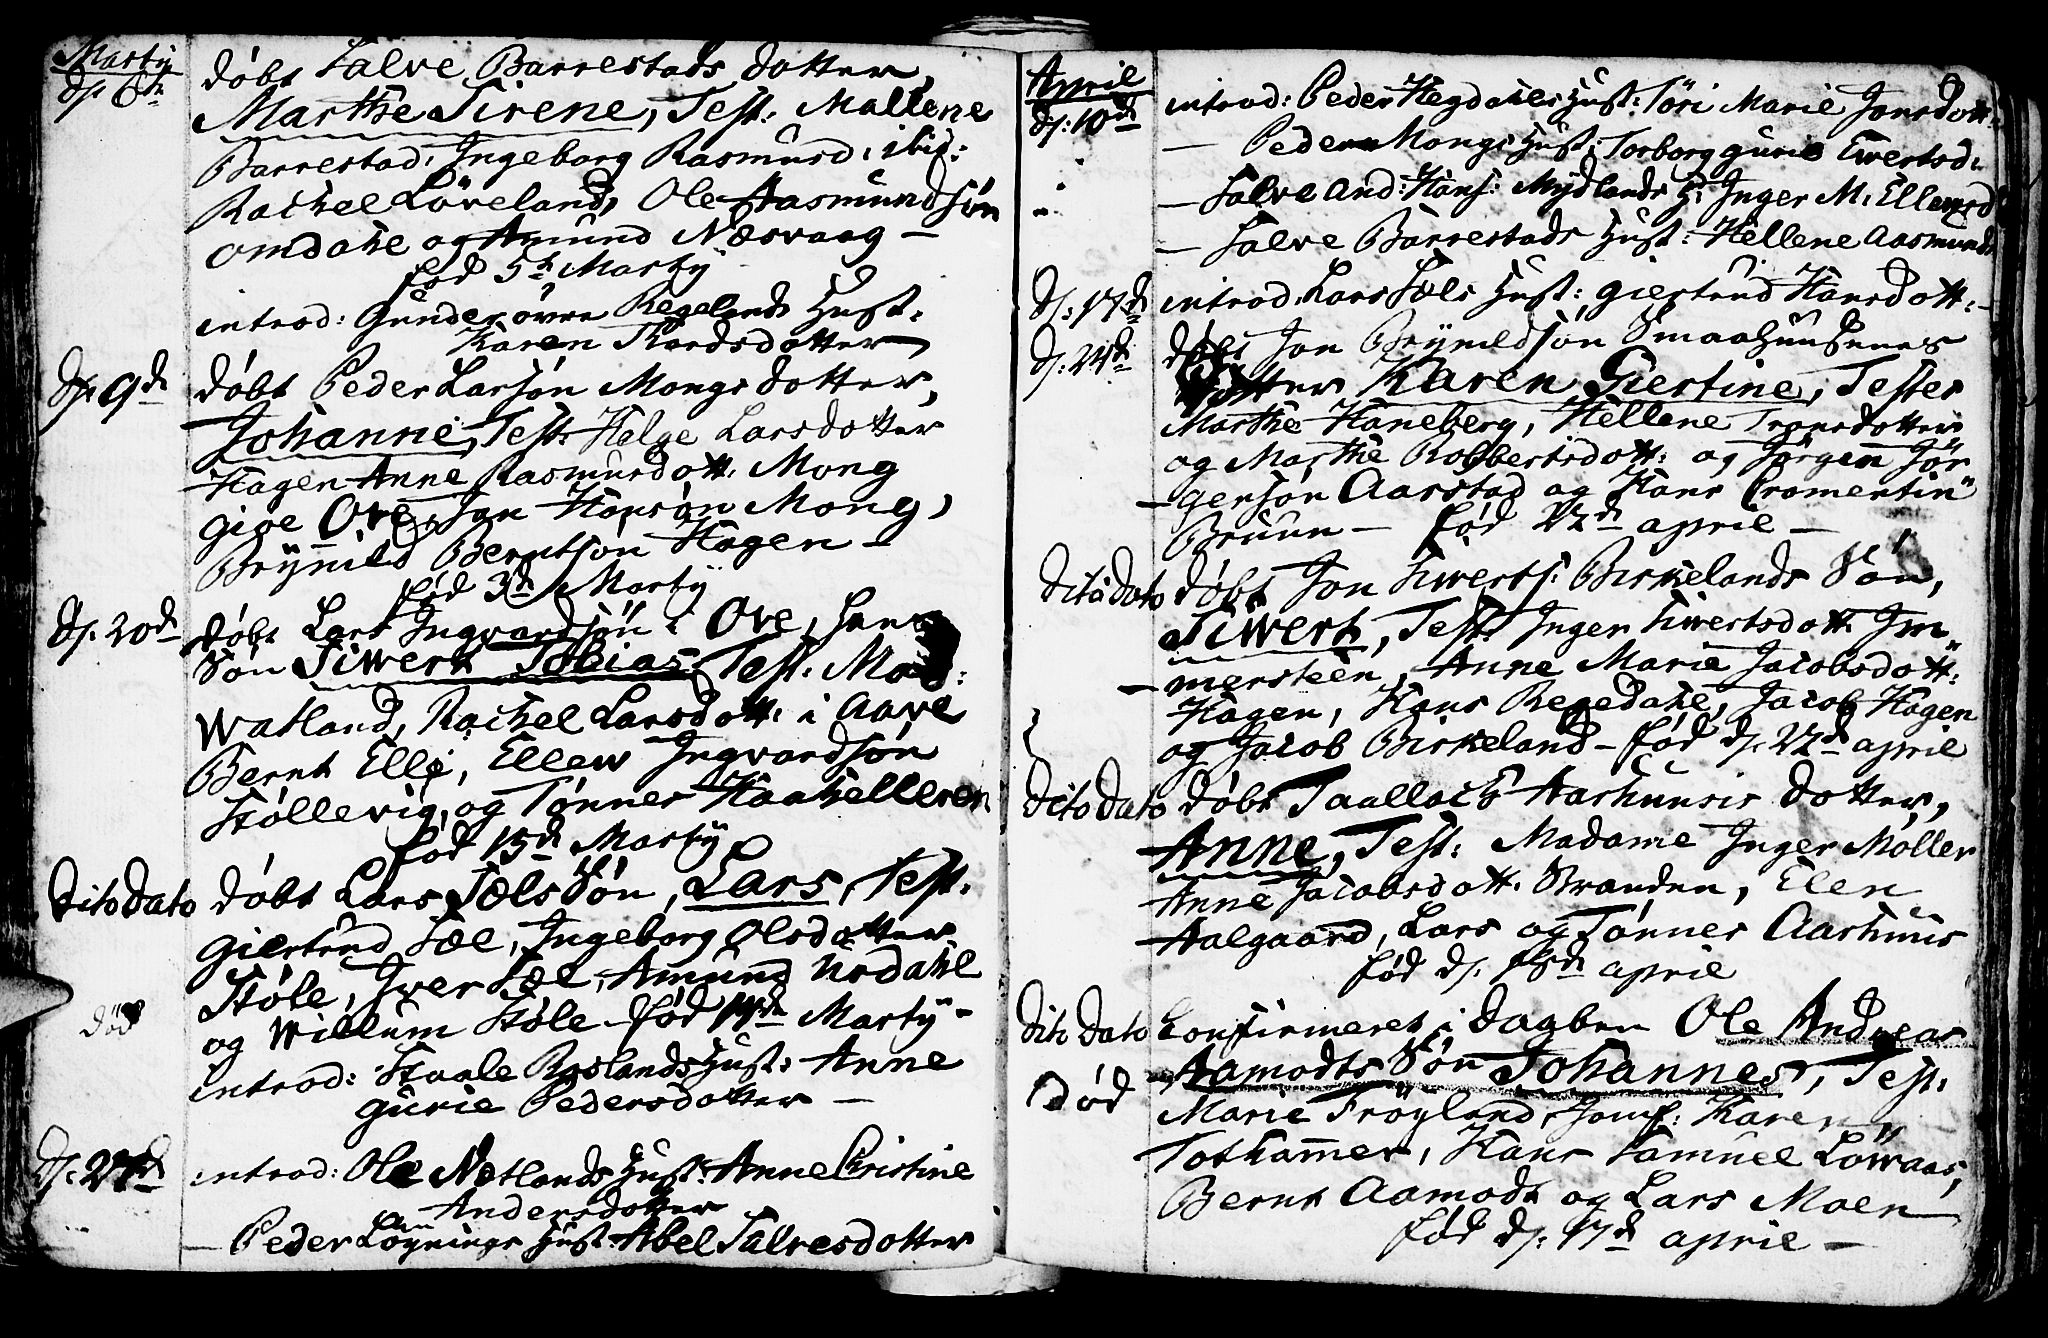 Martij
d. 6te døbt Salve Barrestads dotter,
Marthe Sirene, Test: Mallene
Barrestad, Ingeborg Rasmusd: ibid:
Rachel Løveland, Ole Aasmundsøn
omdahl og Amund Næsvaag —
fød 5te Martij
introd: Gunder øvre Regelands Hust:
Karen Thordsdotter
d. 9de døbt Peder Larsøn Mongs dotter,
Johanne, Test: Helge Larsdotter
Hagen Anne Rasmusdott: Mong
gioe Ove, Jon Hansøn Mong,
Brynild Berntsøn Hagen —
fød 3de Martij
d. 20de døbt Lars Ingvardsøn i Ove, hans
Søn Siwert Tobias Test: Mad:
Watland, Rachel Larsdott: i Aave
Bernt Elle, Ellew Ingvardsøn
Støllevig, og Tønnes Haahelleren
fød 15de Martij
dito dato døbt Lars Sæls Søn, Lars, Test.
giertrud Sæl, Ingeborg Olsdotter
Støle, Iver Sæl, Amund Nodahl
og Willum Støle — fød 14de Martij —
død
introd: Staale Røslands Hust: Anne
gurie Pedersdotter —
d. 27de introd: Ole Netlands Hust: Anne Cristine
Andersdotter
— Peder Løynings Hust: Abel Salvesdotter
April
d: 10de introd: Peder Hegdahls Hust: Töri Marie Jonsdott:
— Peder Mongs Hust: Torborg gurie Ewertsd:
— Salve And: Hans: Mydlands H: Inger M: Ellewsd
— Salve Barrestads Hust: Hellene Aasmunds
d. 17de introd: Lars Sæls Hust: giertrud Hansdott: —
d. 24de døbt Jon Brynildsøn Smaahuusenes
dotter Karen Giertine, Tester
Marthe Haneberg, Hellene Tronsdotter
og Marthe Robbertsdott: og Jørgen Jør
gensøn Aarstad og Hans Cromentin
Bruun — fød 22de april —
dito dato døbt Jon Siwerts: Birkelands Søn,
Siwert, Test: Inger Siwertsdott: Im
mersteen, Anne Marie Jacobsdott:
Hagen, Hans Regedahl, Jacob Hagen
og Jacob Birkeland — fød d. 22de april
dito dato døbt Taallach Aarhuusis dotter,
Anne, Test: Madame Inger Møller
Anne Jacobsdott: Stranden, Elen
Aalgaard, Lars og Tønnes Aarhuus
fød d. 18de april
dito dato Confirmeret i dagben Ole Andreas
Aamodts Søn Johannes, Test:
død
Marie Frøyland, Jomf: Karen
Tothamer, Hans Samuel Løwaas,
Bernt Aamodt og Lars Moen
fød d. 17de april —